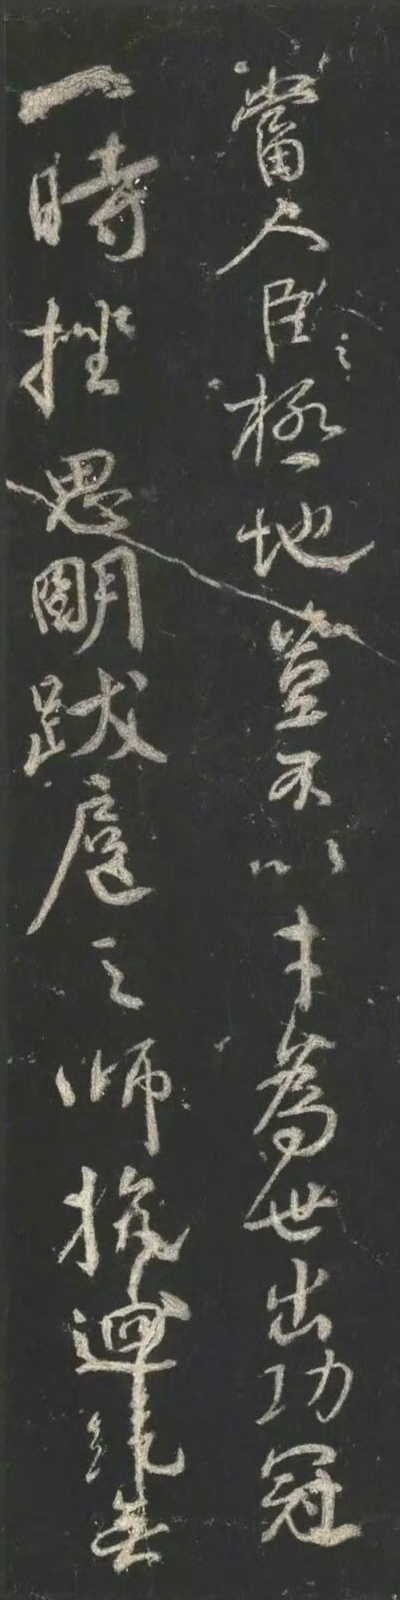 當人臣之極地豈不以才為世出功冠
一時挫思明跋扈之師抗迴紇無